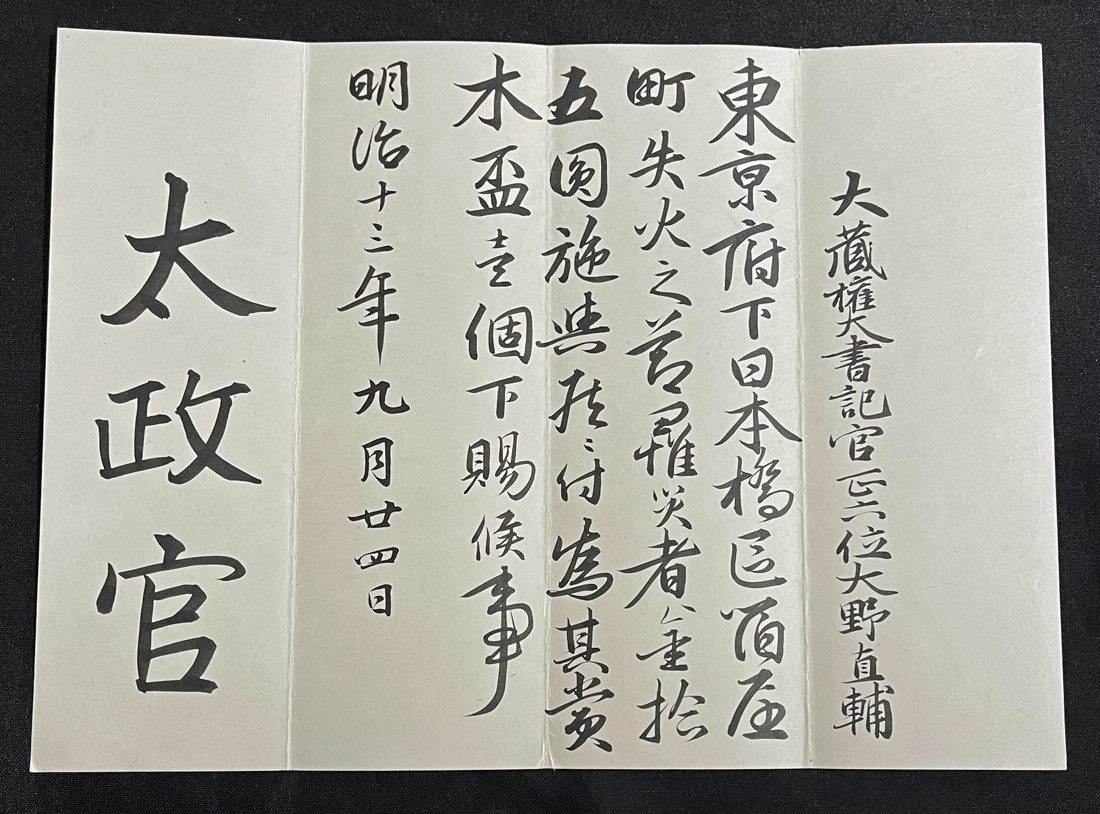 大蔵権大書記官正六位大野直輔
東京府下日本橋区箔屋
町失火之節罹災者へ金拾
五圓施與ニ付為其賞
木盃壱個下賜候事
明治十三年九月廿四日
太政官